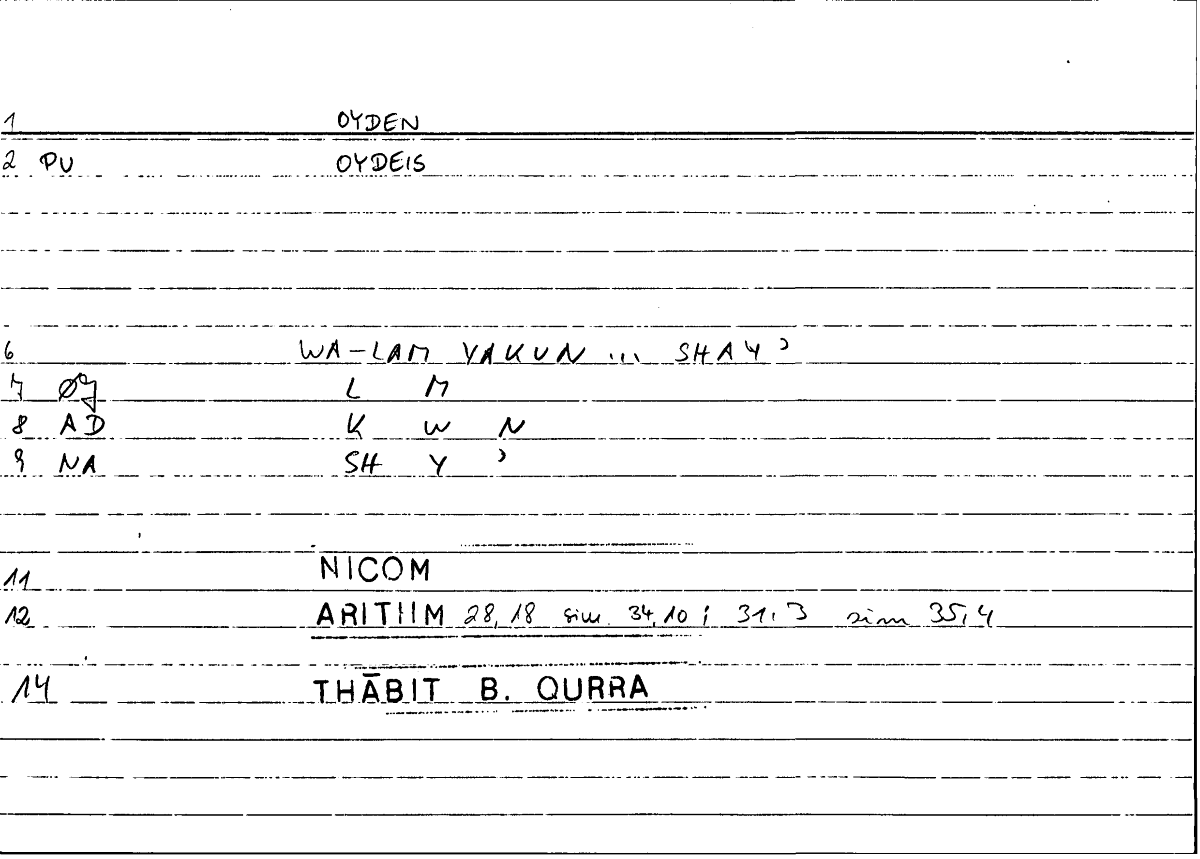 1 OYDEN
2 PU OYDEIS
6 WA-LAM YAKUN ... SHAY ʾ
7 L M
8 AD K W N
9 NA SH Y ʾ
11 NICOM
12 ARITHM 28,18 sim. 34,10; 31,3 sim 35,4
14 THĀBIT B. QURRA